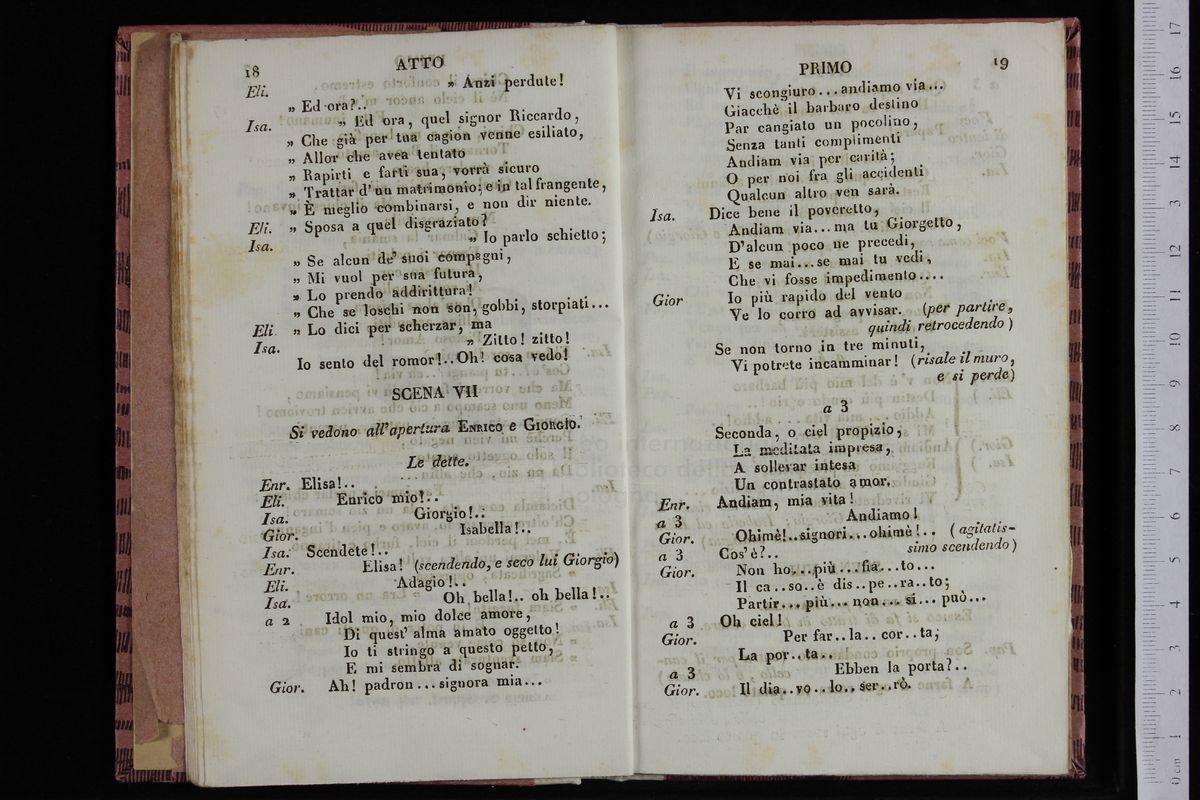 18 ATTO
Eli. „ Anzi perdute!
„ Ed ora?..
Isa. „ Ed ora, quel signor Riccardo,
„ Che già per tua cagion venne esiliato,
„ Allor che avea tentato
„ Rapirti e farti sua, vorrà sicuro
„ Trattar d'un matrimonio; e in tal frangente,
„ È meglio combinarsi, e non dir niente.
Eli. „ Sposa a quel disgraziato?
Isa. „ Io parlo schietto;
„ Se alcun de' suoi compagni,
„ Mi vuol per sua futura,
„ Lo prendo addirittura!
„ Che se loschi non son, gobbi, storpiati...
Eli. „ Lo dici per scherzar, ma
Isa. „ Zitto! zitto!
Io sento del romor!..Oh! cosa vedo!
SCENA VII
Si vedono all'apertura ENRICO e GIORGIO.
Le dette.
Enr. Elisa!..
Eli. Enrico mio!..
Isa. Giorgio!..
Gior. Isabella!..
Isa. Scendete!..
Enr. Elisa! (scendendo, e seco lui Giorgio)
Eli. Adagio!..
Isa. Oh bella!.. oh bella!..
a 2 Idol mio, mio dolce amore,
Di quest' alma amato oggetto!
Io ti stringo a questo petto,
E mi sembra di sognar.
Gior. Ah! padron...signora mia...
PRIMO 19
Vi scongiuro...andiamo via...
Giacchè il barbaro destino
Par cangiato un pocolino,
Senza tanti complimenti
Andiam via per carità;
O per noi fra gli accidenti
Qualcun altro ven sarà.
Isa. Dice bene il poveretto,
Andiam via...ma tu Giorgetto,
D'alcun poco ne precedi,
E se mai...se mai tu vedi,
Che vi fosse impedimento....
Gior Io più rapido del vento
Ve lo corro ad avvisar. (per partire,
quindi retrocedendo)
Se non torno in tre minuti,
Vi potrete incamminar! (risale il muro,
e si perde)
a 3
Seconda, o ciel propizio,
La meditata impresa,
A sollevar intesa
Un contrastato amor.
Enr. Andiam, mia vita!
a 3 Andiamo!
Gior. Ohimè!..signori...ohimè!.. (agitatis-
a 3 Cos'è?.. simo scendendo)
Gior. Non ho...più...fia...to...
Il ca..so..è dis..pe..ra..to;
Partir...più...non...si...può...
a 3 Oh ciel!
Gior. Per far..la..cor..ta,
La por..ta..
a 3 Ebben la porta?..
Gior. Il dia..vo..lo..ser..rò.